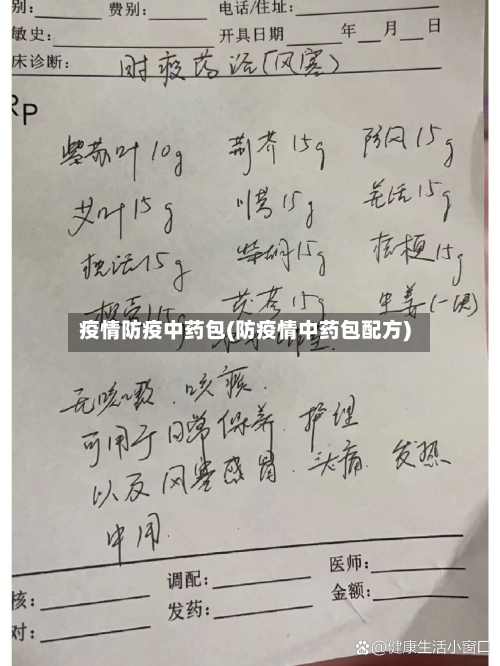 别： 费别： 电话/住址：
敏史： 开具日期 年 月 日
床诊断： 时疫药浴(风寒)
RP
紫苏叶10g 荆芥15g 防风15g
艾叶15g 川芎15g 羌活15g
独活15g 柴胡15g 桔梗15g
枳壳15g 茯苓15g 生姜(一块)
疫情防疫中药包(防疫情中药包配方)
无咳嗽.咳痰.
可用于日常保养.护理
以及风寒感冒.头痛.发热
中用.
核： 调配： 医师：
对： 发药： 金额：
@健康生活小窗口